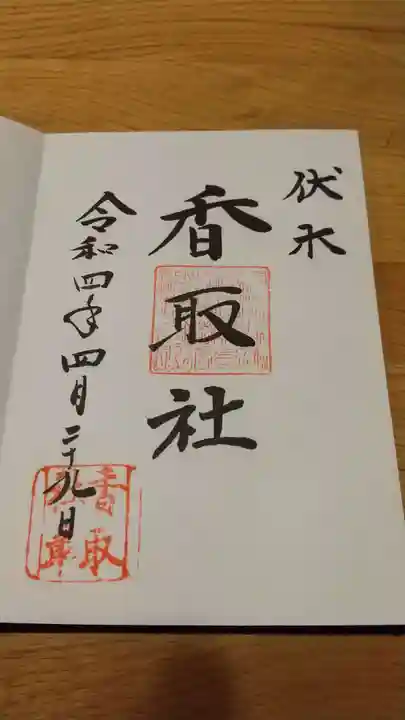 伏木
香取社
令和四年四月二十九日
香取